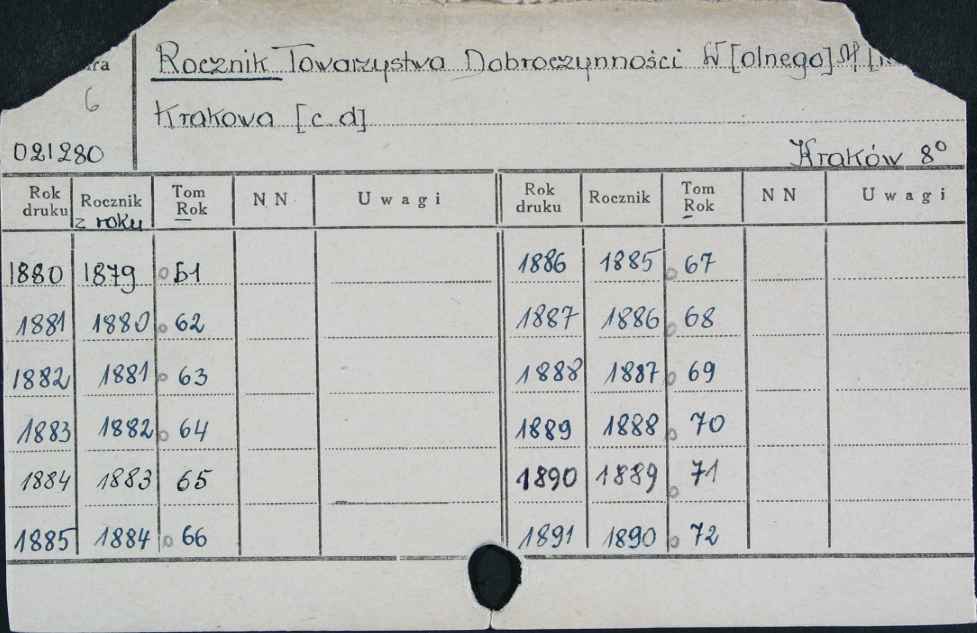 Rocznik Towarzystwa Dobroczynności W[olnego] M[
6
Krakowa [c d]
021280
Kraków 8°
Rok druku Rocznik z roku Tom Rok N N Uwagi Rok druku Rocznik Tom Rok N N Uwagi
1880 1879 61 1886 1885 67
1881 1880 62 1887 1886 68
1882 1881 63 1888 1887 69
1883 1882 64 1889 1888 70
1884 1883 65 1890 1889 71
1885 1884 66 1891 1890 72